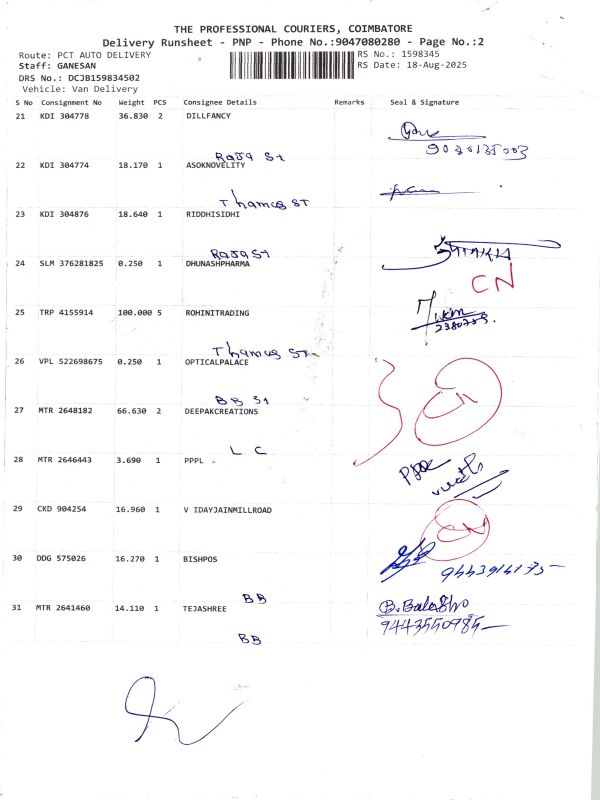 THE PROFESSIONAL COURIERS, COIMBATORE
Delivery Runsheet - PNP - Phone No.:9047080280 - Page No.:2
Route: PCT AUTO DELIVERY
RS No.: 1598345
Staff: GANESAN
RS Date: 18-Aug-2025
DRS No.: DCJB159834502
Vehicle: Van Delivery
S No Consignment No Weight PCS Consignee Details Remarks Seal & Signature
21 KDI 304778 36.830 2 DILLFANCY
Raja St
22 KDI 304774 18.170 1 ASOKNOVELITY
Thamus ST
23 KDI 304876 18.640 1 RIDDHISIDHI
Raja St
24 SLM 376281825 0.250 1 DHUNASHPHARMA
CN
25 TRP 4155914 100.000 5 ROHINITRADING
Thamus St
26 VPL 522698675 0.250 1 OPTICALPALACE
BB St
27 MTR 2648182 66.630 2 DEEPAKCREATIONS
L C
28 MTR 2646443 3.690 1 PPPL
29 CKD 904254 16.960 1 V IDAYJAINMILLROAD
CN
30 DDG 575026 16.270 1 BISHPOS
BB
31 MTR 2641460 14.110 1 TEJASHREE
9443550985
BB